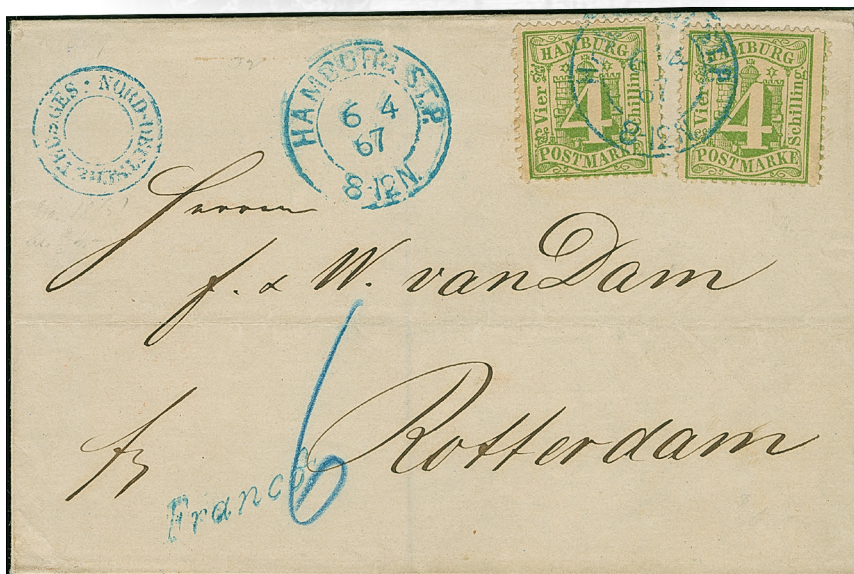 NORD-DEUTSCHE
HAMBURG ST.P.
6 4
67
8-12N.
HAMBURG
Vier
4
Schilling
POSTMARKE
HAMBURG
Vier
4
Schilling
POSTMARKE
Herren
J. & W. van Dam
6
Rotterdam
fr
Franco.